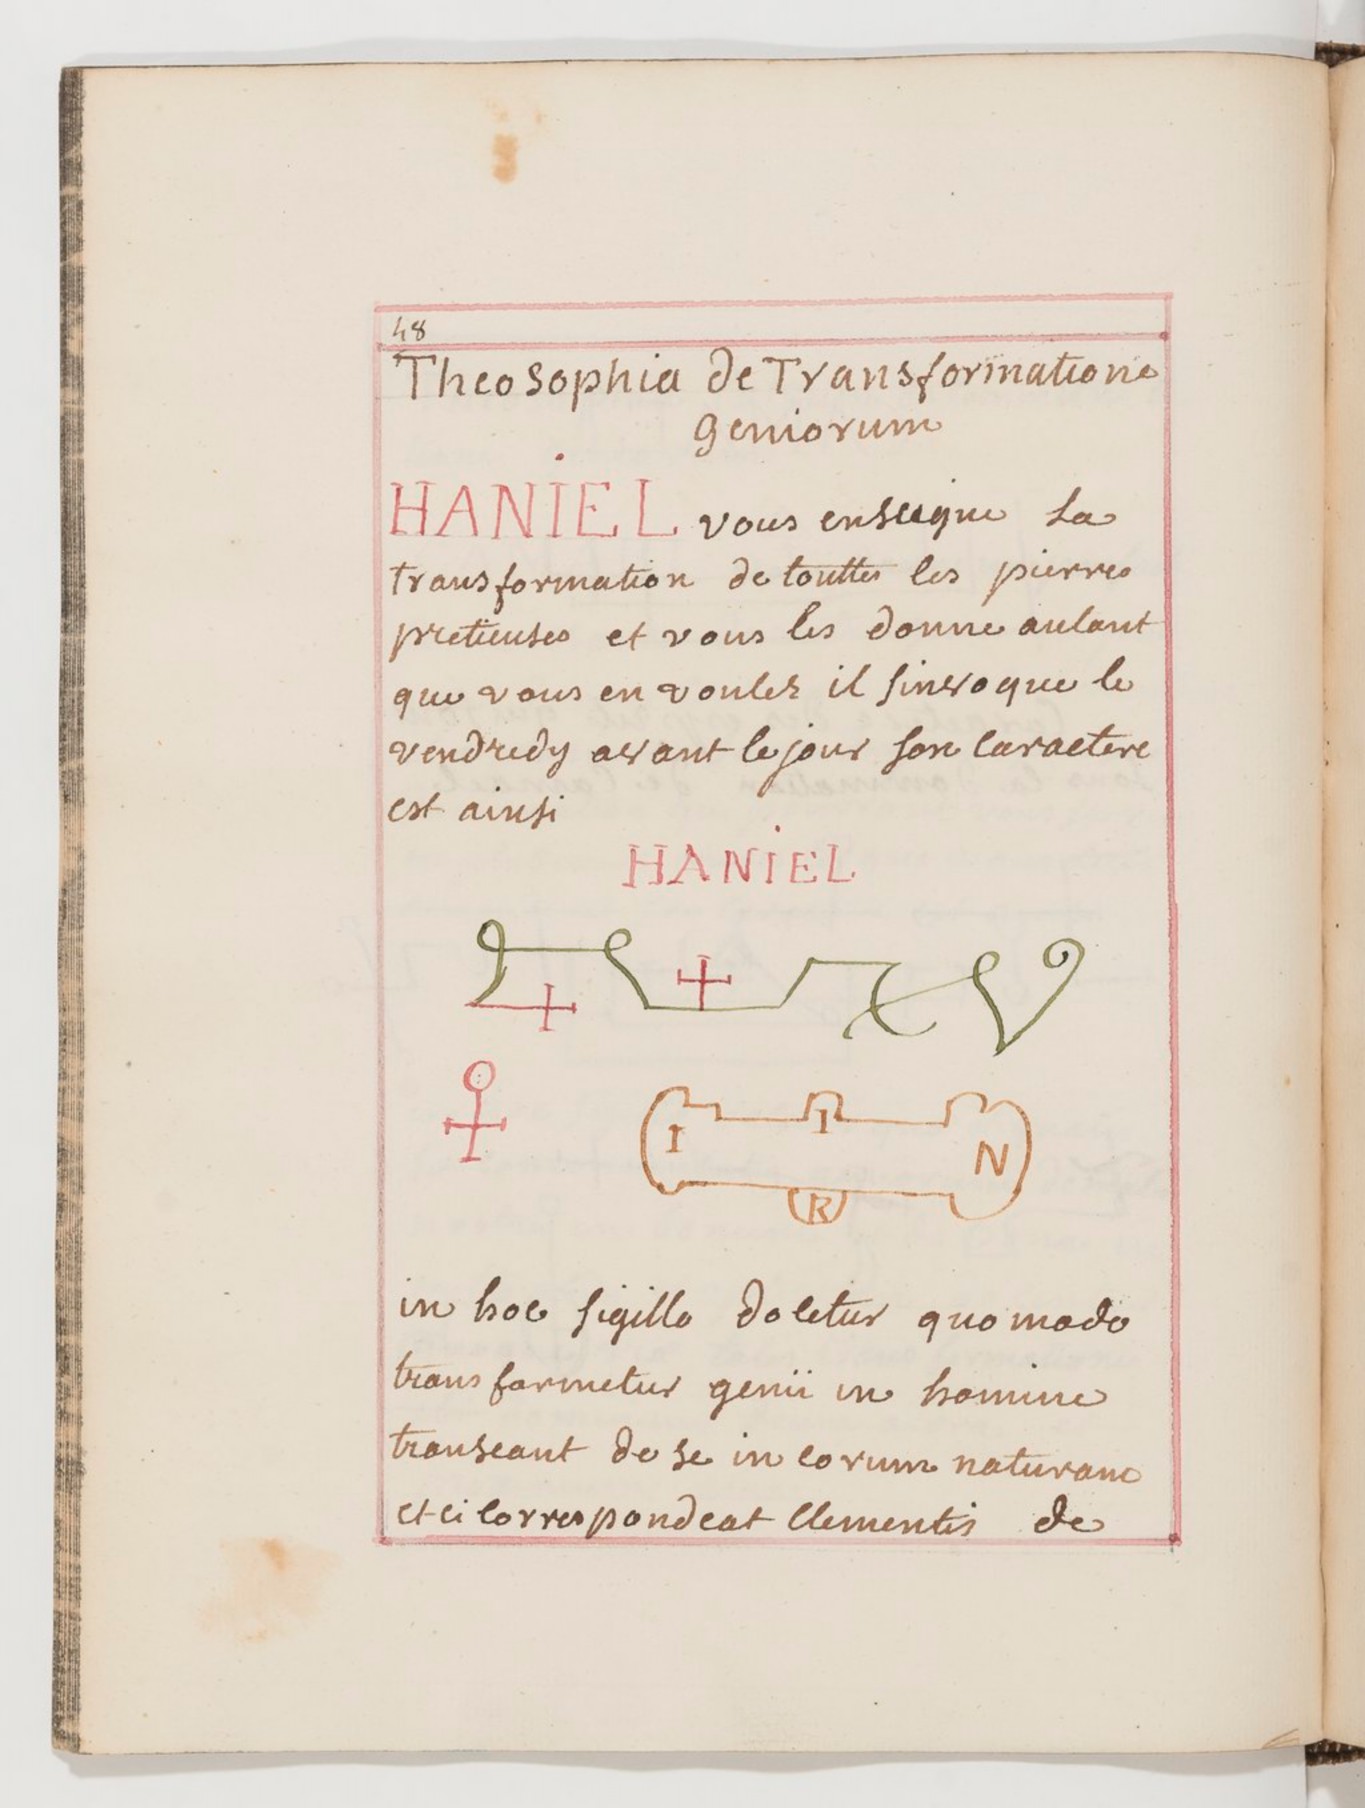 48
Theosophia de Transformatione
Geniorum
HANIEL vous enseigne La
transformation de touttes les pierres
pretieuses et vous les donne autant
que vous en voulez il sinvoque le
vendredy avant le jour son caractere
est ainsi
HANIEL
I I N
R
in hoc sigillo docetur quomodo
transformetur genii in homine
transeant de se in eorum naturam
et ei correspondeat Clementis de